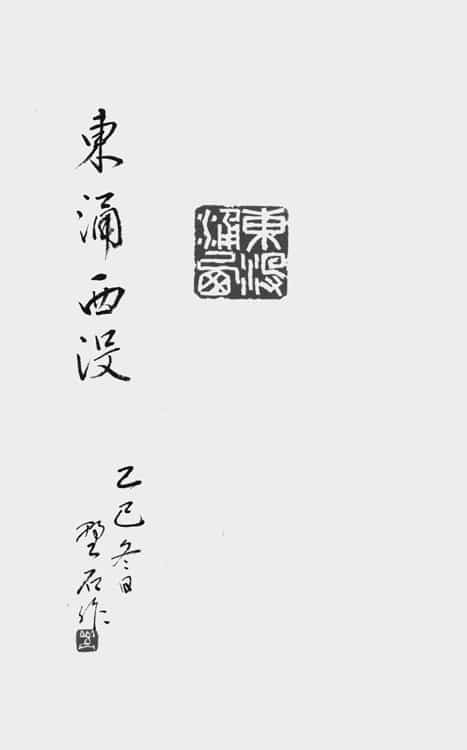 東涌西没
東涌西没
乙巳冬日
石作